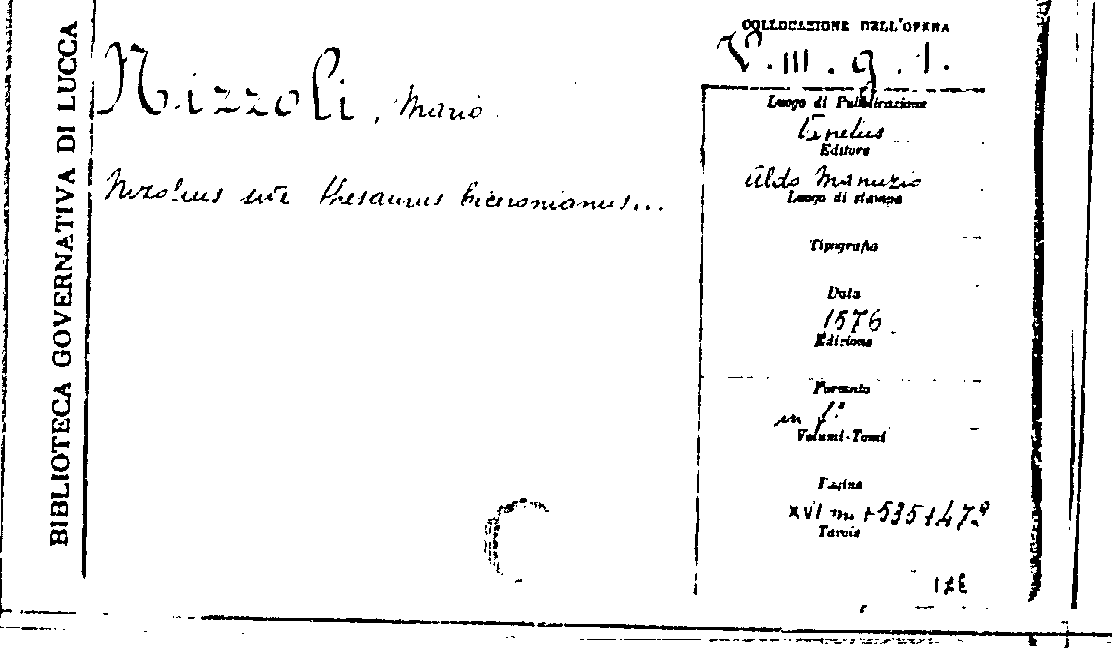 BIBLIOTECA GOVERNATIVA DI LUCCA
Nizzoli, Mario
Nizolius sive thesaurus Ciceronianus...
COLLOCAZIONE DELL'OPERA
V. III. g. 1.
Luogo di Pubblicazione
Editore
Aldo Manuzio
Luogo di stampa
Tipografia
Data
1576
Edizione
Formato
in f.°
Volumi-Tomi
Pagine
XVI + 535 + 47
Tavole